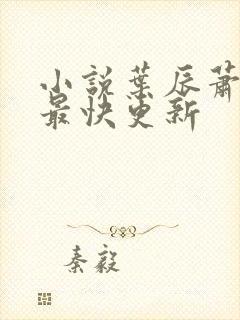 小説葉辰蕭
最快更新
秦毅